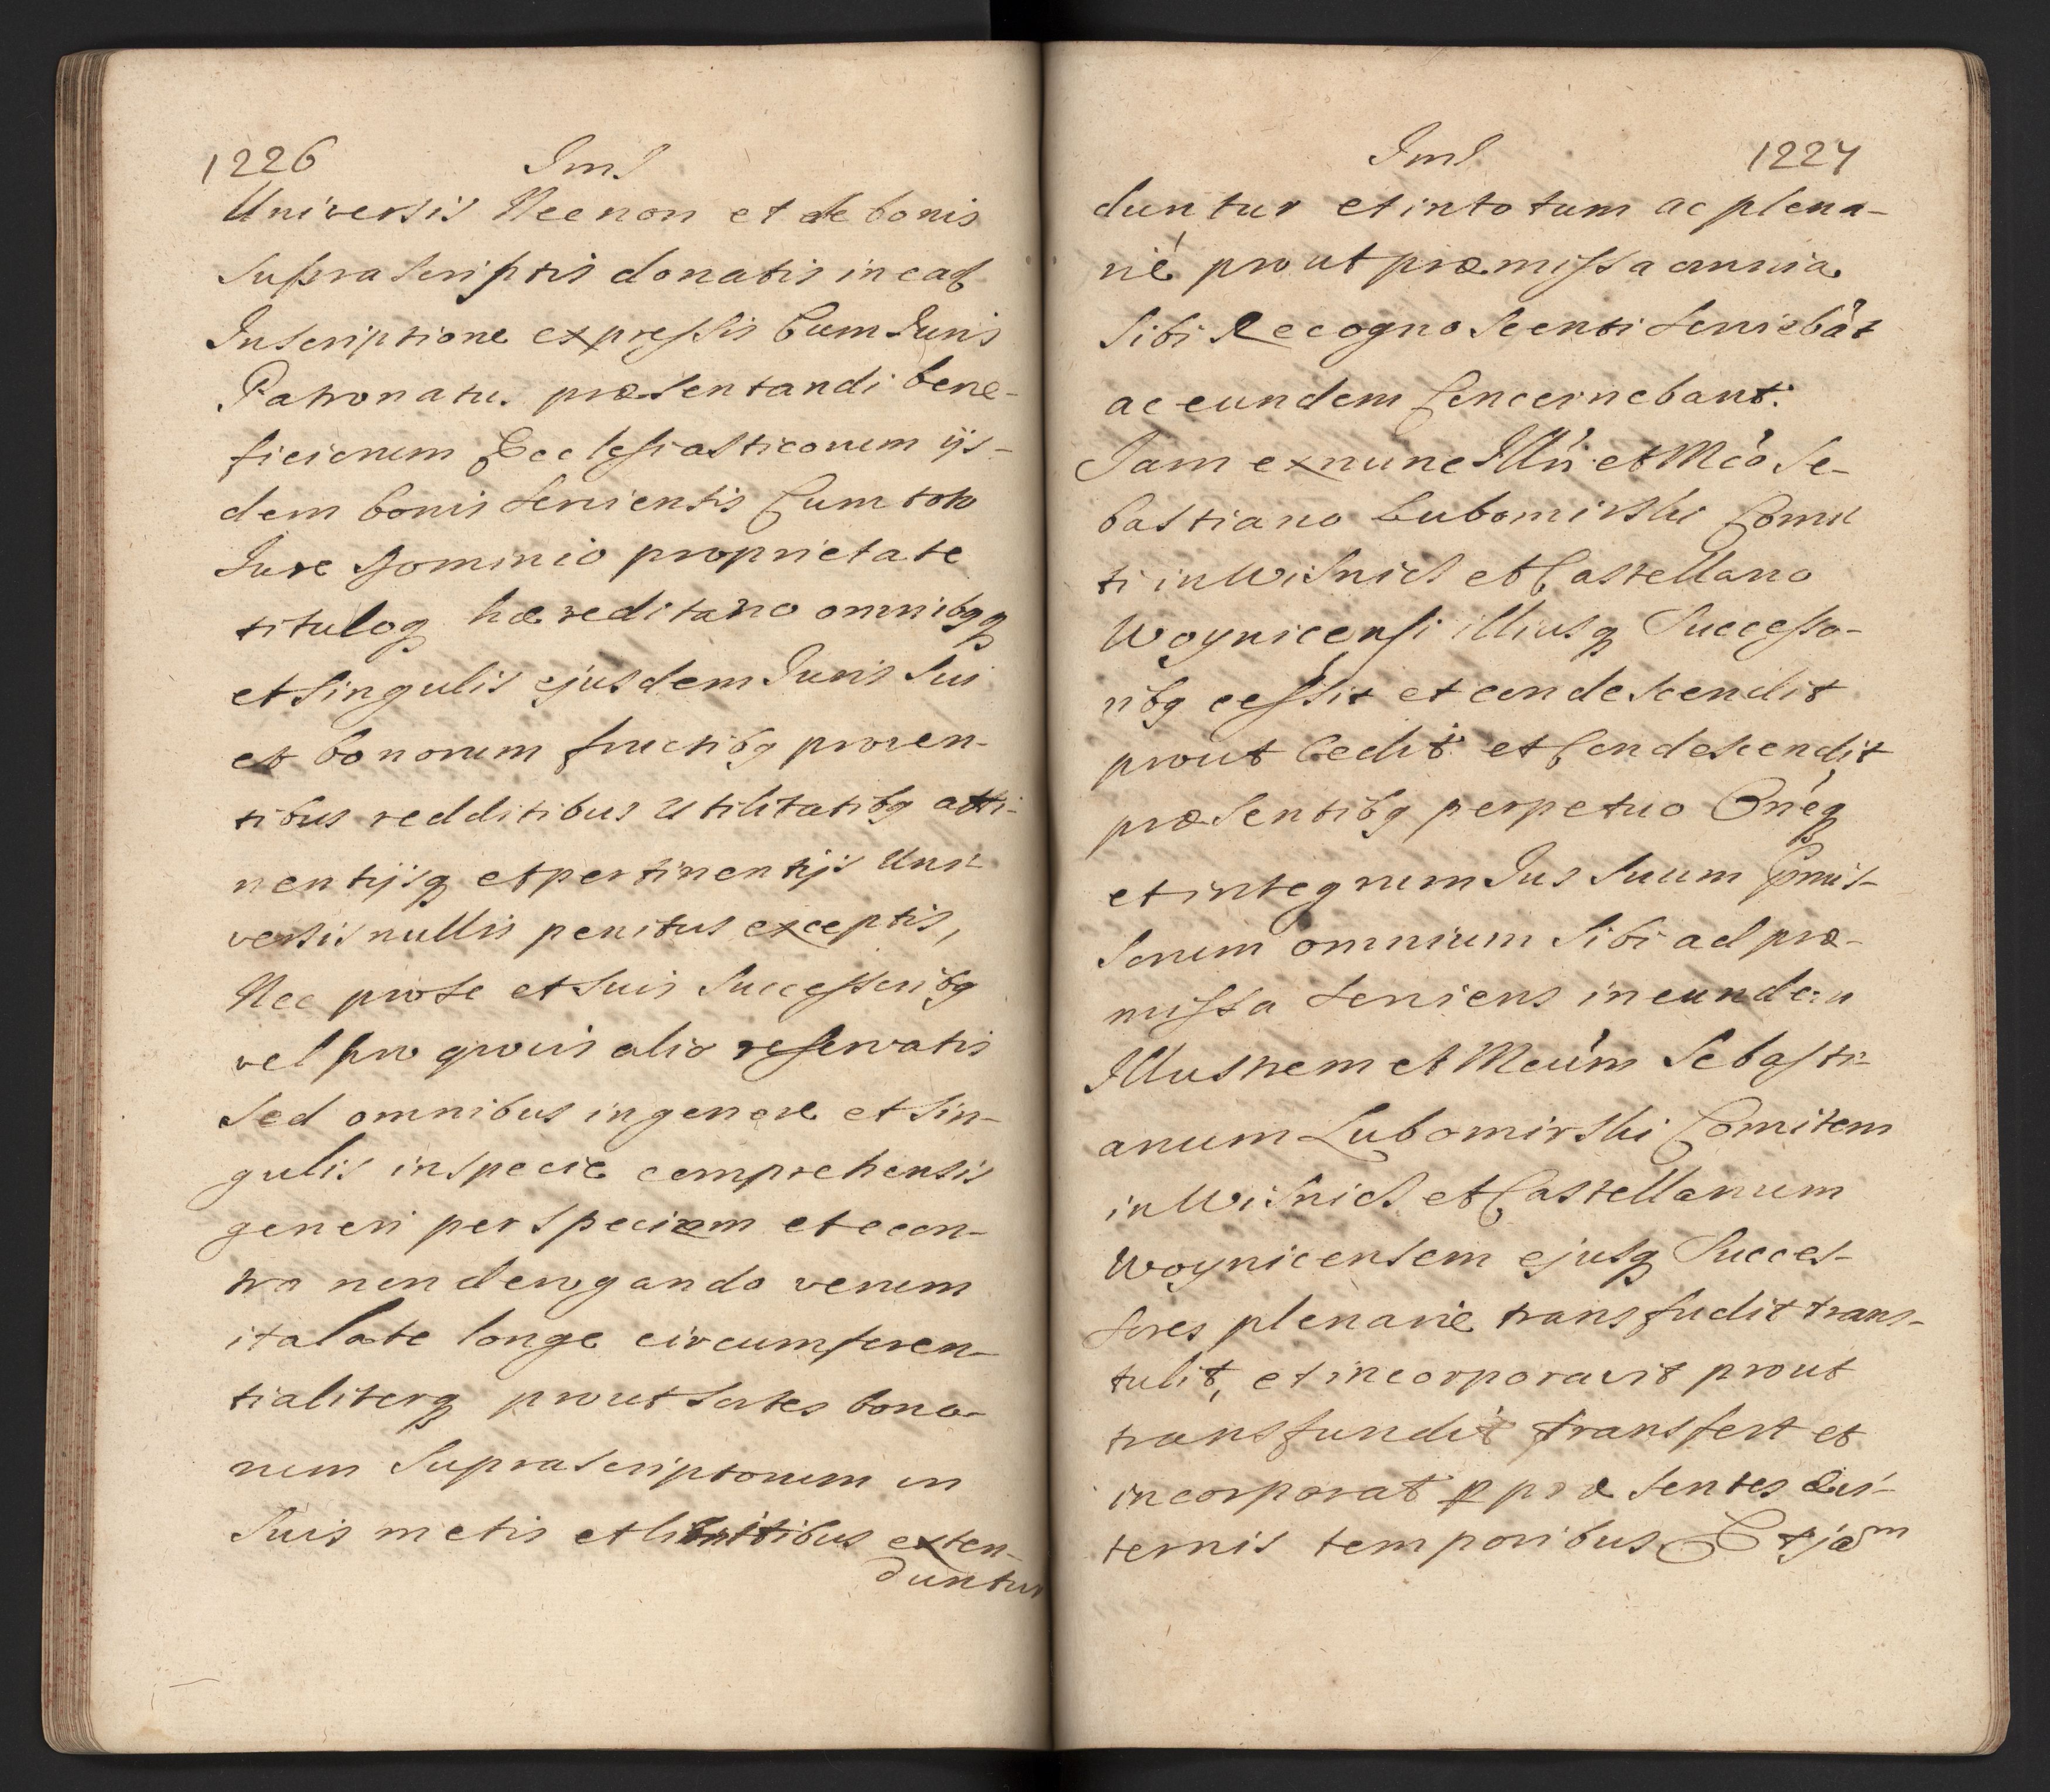 1226 Iml
Universis Necnon et de bonis
supra scriptis donatis in ead
Inscriptione expressis Cum Juris
Patronatu. præsentandi bene-
ficiorum Ecclesiasticorum ijs-
dem bonis servientis Cum toto
Iure Dominio proprietate
tituloq hæreditario omnibqq
et singulis ejusdem Juris sui
et bonorum fructibq proven-
tibus redditibus utilitatibq atti-
nentijsq et pertinentijs Uni-
versis nullis penitus exceptis,
Nec pro se et suis Successoribq
vel pro quovis alio reservatis
sed omnibus in genere et sin-
gulis in specie comprehensis
generi per speciem et econ-
tra non derogando verum
ita late longe circumferen-
tialiterq prout sortes bono-
rum suprascriptorum in
suis metis et limitibus exten-
duntur
Iml 1227
duntur et in totum ac plena-
rié prout præmissa omnia
sibi Recognoscenti serviebat
ac eundem Concernebant.
Jam ex nunc Illri et Mco Se-
bastiano Lubomirski Comi
ti in Wisnicz et Castellano
Woynicensi illiusq Successo-
ribq cessit et condescendit
prout Cedit et Condescendit
præsentibq perpetuo Oneq
et integrum Jus suum
sorum omnium sibi ad præ-
missa serviens in eundem
Illustrem et Mcum Sebasti-
anum Lubomirski Comitem
in Wisnicz et Castellanum
Woynicensem ejusq Succes-
sores plenarie transfudit trans-
tulit, et incorporavit prout
transfundit transfert et
incorporat p præsentes ævi-
ternis temporibus Etja͠m